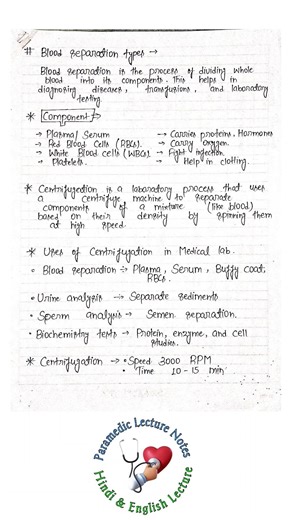 # Blood separation types →
Blood separation is the process of dividing whole
blood into its components. This helps in
diagnosing diseases, transfusions, and laboratory
testing
* Components →
→ Plasma/Serum → Carries proteins. Hormones
→ Red Blood Cells (RBCs). → Carry oxygen.
→ White Blood cells (WBCs). → Fight infection.
→ Platelets. → Help in clotting.
* Centrifugation is a laboratory process that uses
a centrifuge machine to separate
components of a mixture (like blood)
based on their density by spinning them
at high speed.
* Uses of Centrifugation in Medical lab.
• Blood separation :- Plasma, Serum, Buffy coat,
RBCs.
• Urine analysis → Separate sediments.
• Sperm analysis → Semen separation.
• Biochemistry tests → Protein, enzyme, and cell
studies.
* Centrifugation → • Speed 3000 RPM
• Time 10-15 min
Paramedic Lecture Notes
Hindi & English Lecture